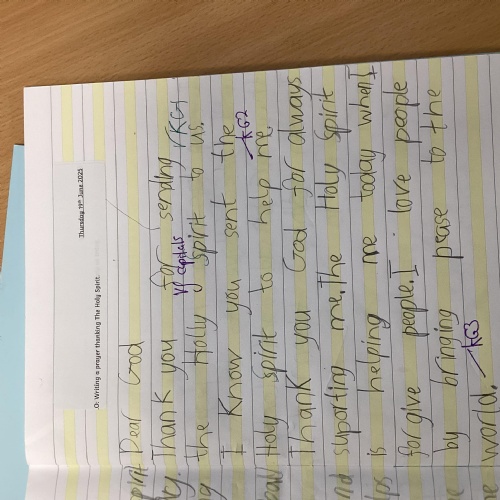 Thursday 19th June 2025
.O: Writing a prayer thanking The Holy Spirit.
Dear God
Thank you for sending RKG1
VF capitals
the Holly spirit to us.
I Know you sent the
KG2
Holy spirit to help me
Thank you God for always
supporting me. The Holy Spirit
is helping me today when I
forgive people. I love people
by bringing pease to the
KG3
world.